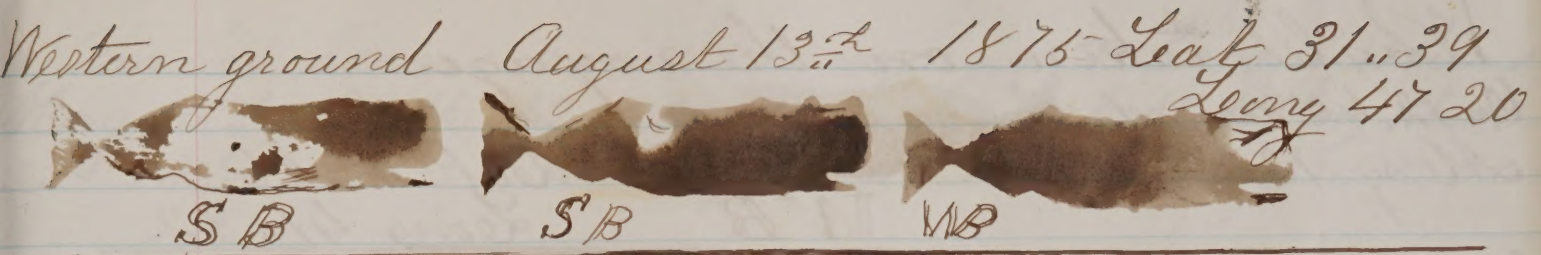 Western ground August 13th 1875 Leat 31"39
Long 47 20
SB SB WB